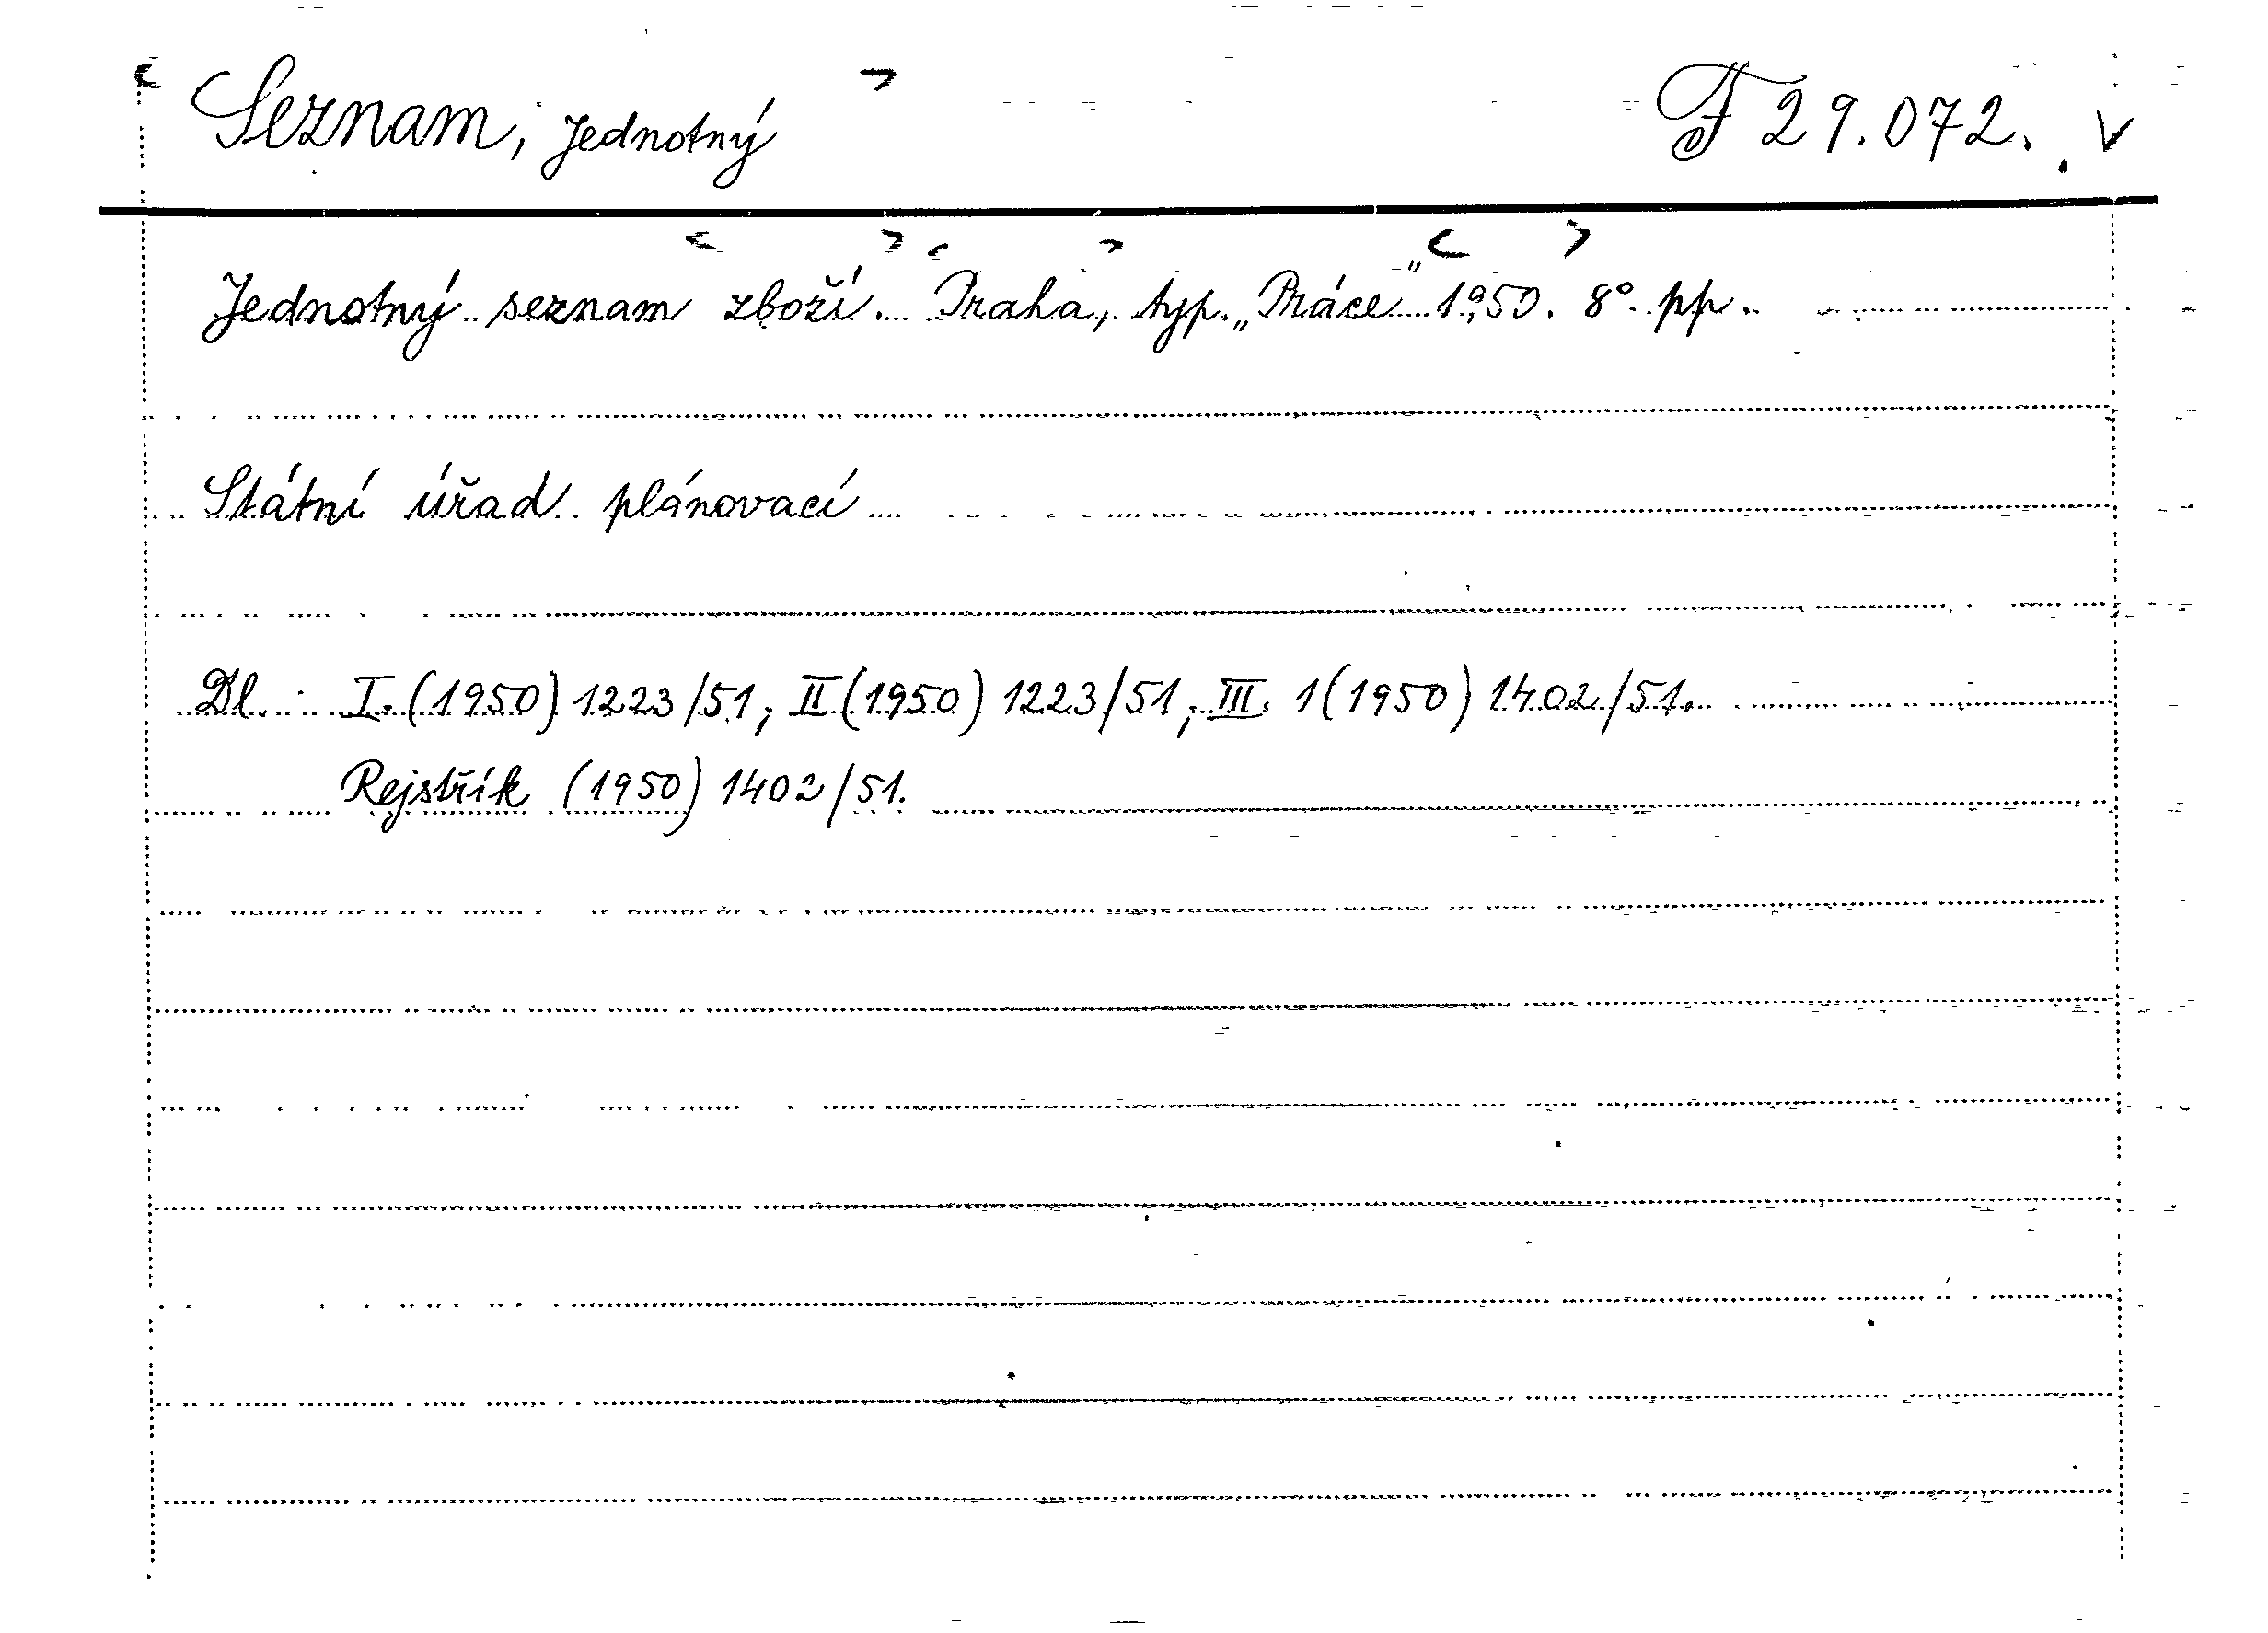 Seznam, Jednotný F 29.072. v
Jednotný seznam zboží. Praha, typ. „Práce" 1950. 8° pp.
Státní úřad plánovací
Dl. : I. (1950) 1223/51, II (1950) 1223/51, III. 1(1950) 1402/51.
Rejstřík (1950) 1402/51.